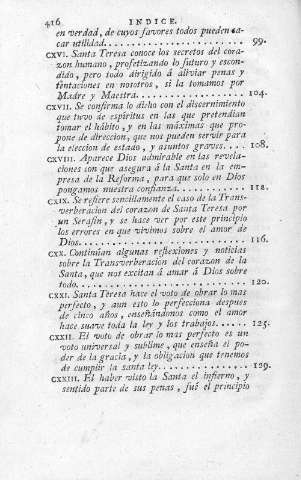 416 INDICE.
en verdad, de cuyos favores todos pueden sa-
car utilidad........................ 99.
CXVI. Santa Teresa conoce los secretos del cora-
zon humano, profetizando lo futuro y escon-
dido, pero todo dirigido á aliviar penas y
tentaciones en nosotros, si la tomamos por
Madre y Maestra.................... 104.
CXVII. Se confirma lo dicho con el discernimiento
que tuvo de espíritus en las que pretendian
tomar el hábito, y en las máximas que pro-
pone de direccion, que nos pueden servir para
la eleccion de estado, y asuntos graves.... 108.
CXVIII. Aparece Dios admirable en las revela-
ciones con que asegura á la Santa en la em-
presa de la Reforma, para que solo en Dios
pongamos nuestra confianza............ 112.
CXIX. Se refiere sencillamente el caso de la Trans-
verberacion del corazon de Santa Teresa por
un Serafin, y se hace ver por este principio
los errores en que vivimos sobre el amor de
Dios............................ 116.
CXX. Continúan algunas reflexîones y noticias
sobre la Transverberacion del corazon de la
Santa, que nos excitan á amar á Dios sobre
todo............................ 120.
CXXI. Santa Teresa hace el voto de obrar lo mas
perfecto, y aun esto lo perfecciona despues
de cinco años, enseñándonos como el amor
hace suave toda la ley y los trabajos...... 125.
CXXII. El voto de obrar lo mas perfecto es un
voto universal y sublime, que enseña el po-
der de la gracia, y la obligacion que tenemos
de cumplir la santa ley................ 129.
CXXIII. El haber visto la Santa el infierno, y
sentido parte de sus penas, fué el principio